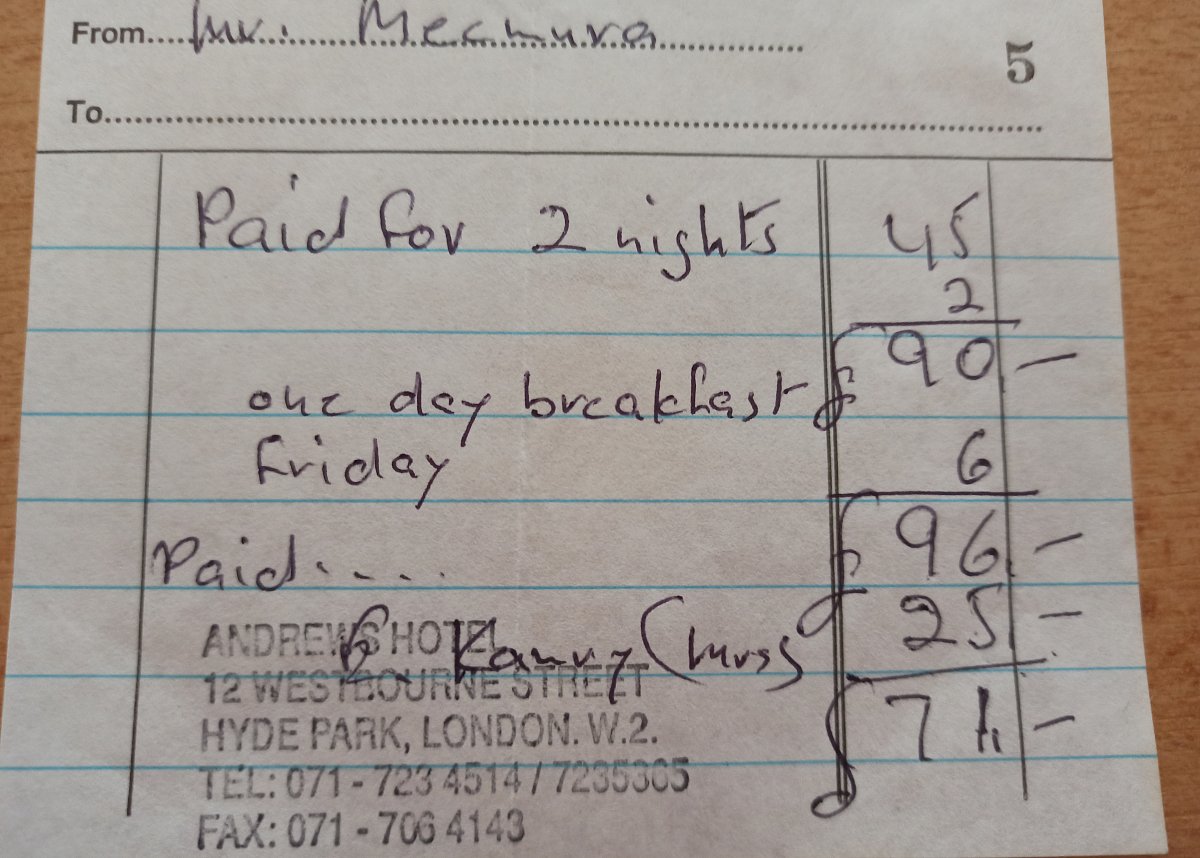 From....Mr. Mechura
5
To
Paid for 2 nights 45
2
£ 90 -
one day breakfast
Friday 6
£ 96 -
Paid.....
£ 25 -
ANDREWS HOTEL
12 WESTBOURNE STREET
£ 71 -
HYDE PARK, LONDON. W.2.
TEL: 071 - 723 4514 / 7235365
FAX: 071 - 706 4143